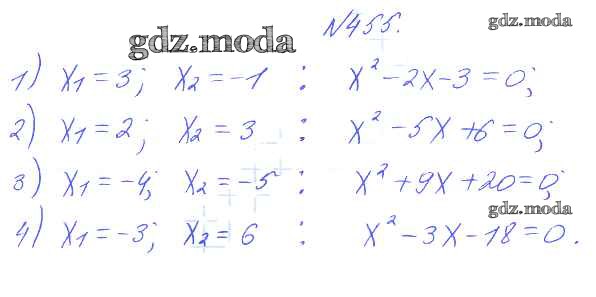 №455.
gdz.moda
gdz.moda
1) x₁ = 3; x₂ = -1 : x² - 2x - 3 = 0;
2) x₁ = 2; x₂ = 3 : x² - 5x + 6 = 0;
3) x₁ = -4; x₂ = -5 : x² + 9x + 20 = 0;
gdz.moda
4) x₁ = -3; x₂ = 6 : x² - 3x - 18 = 0.